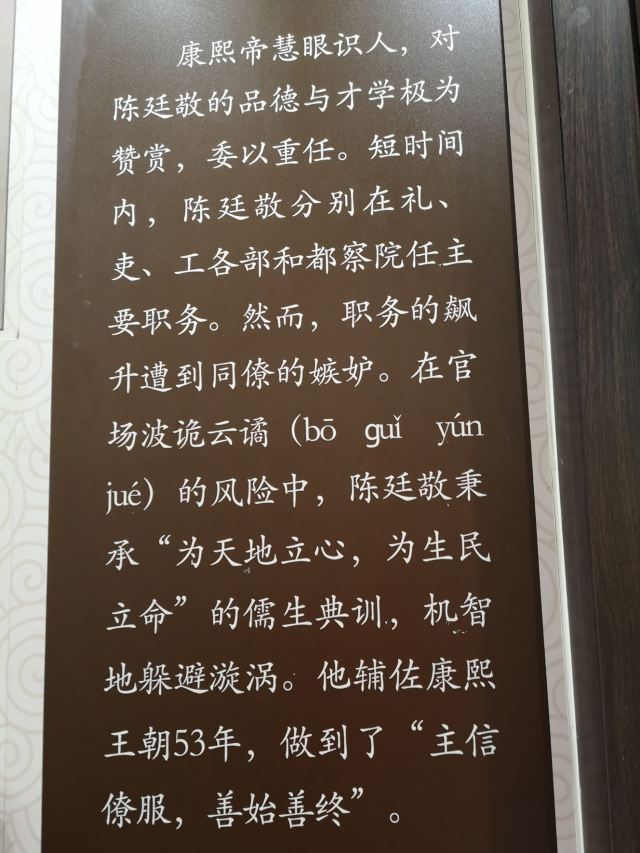 康熙帝慧眼识人，对
陈廷敬的品德与才学极为
赞赏，委以重任。短时间
内，陈廷敬分别在礼、
吏、工各部和都察院任主
要职务。然而，职务的飙
升遭到同僚的嫉妒。在官
场波诡云谲（bō guǐ yún
jué）的风险中，陈廷敬秉
承“为天地立心，为生民
立命”的儒生典训，机智
地躲避漩涡。他辅佐康熙
王朝53年，做到了“主信
僚服，善始善终”。